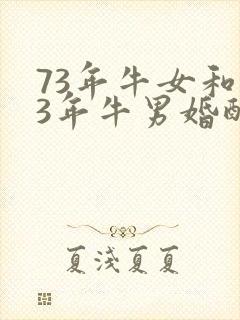 73年牛女和
3年牛男婚配
夏浅夏夏